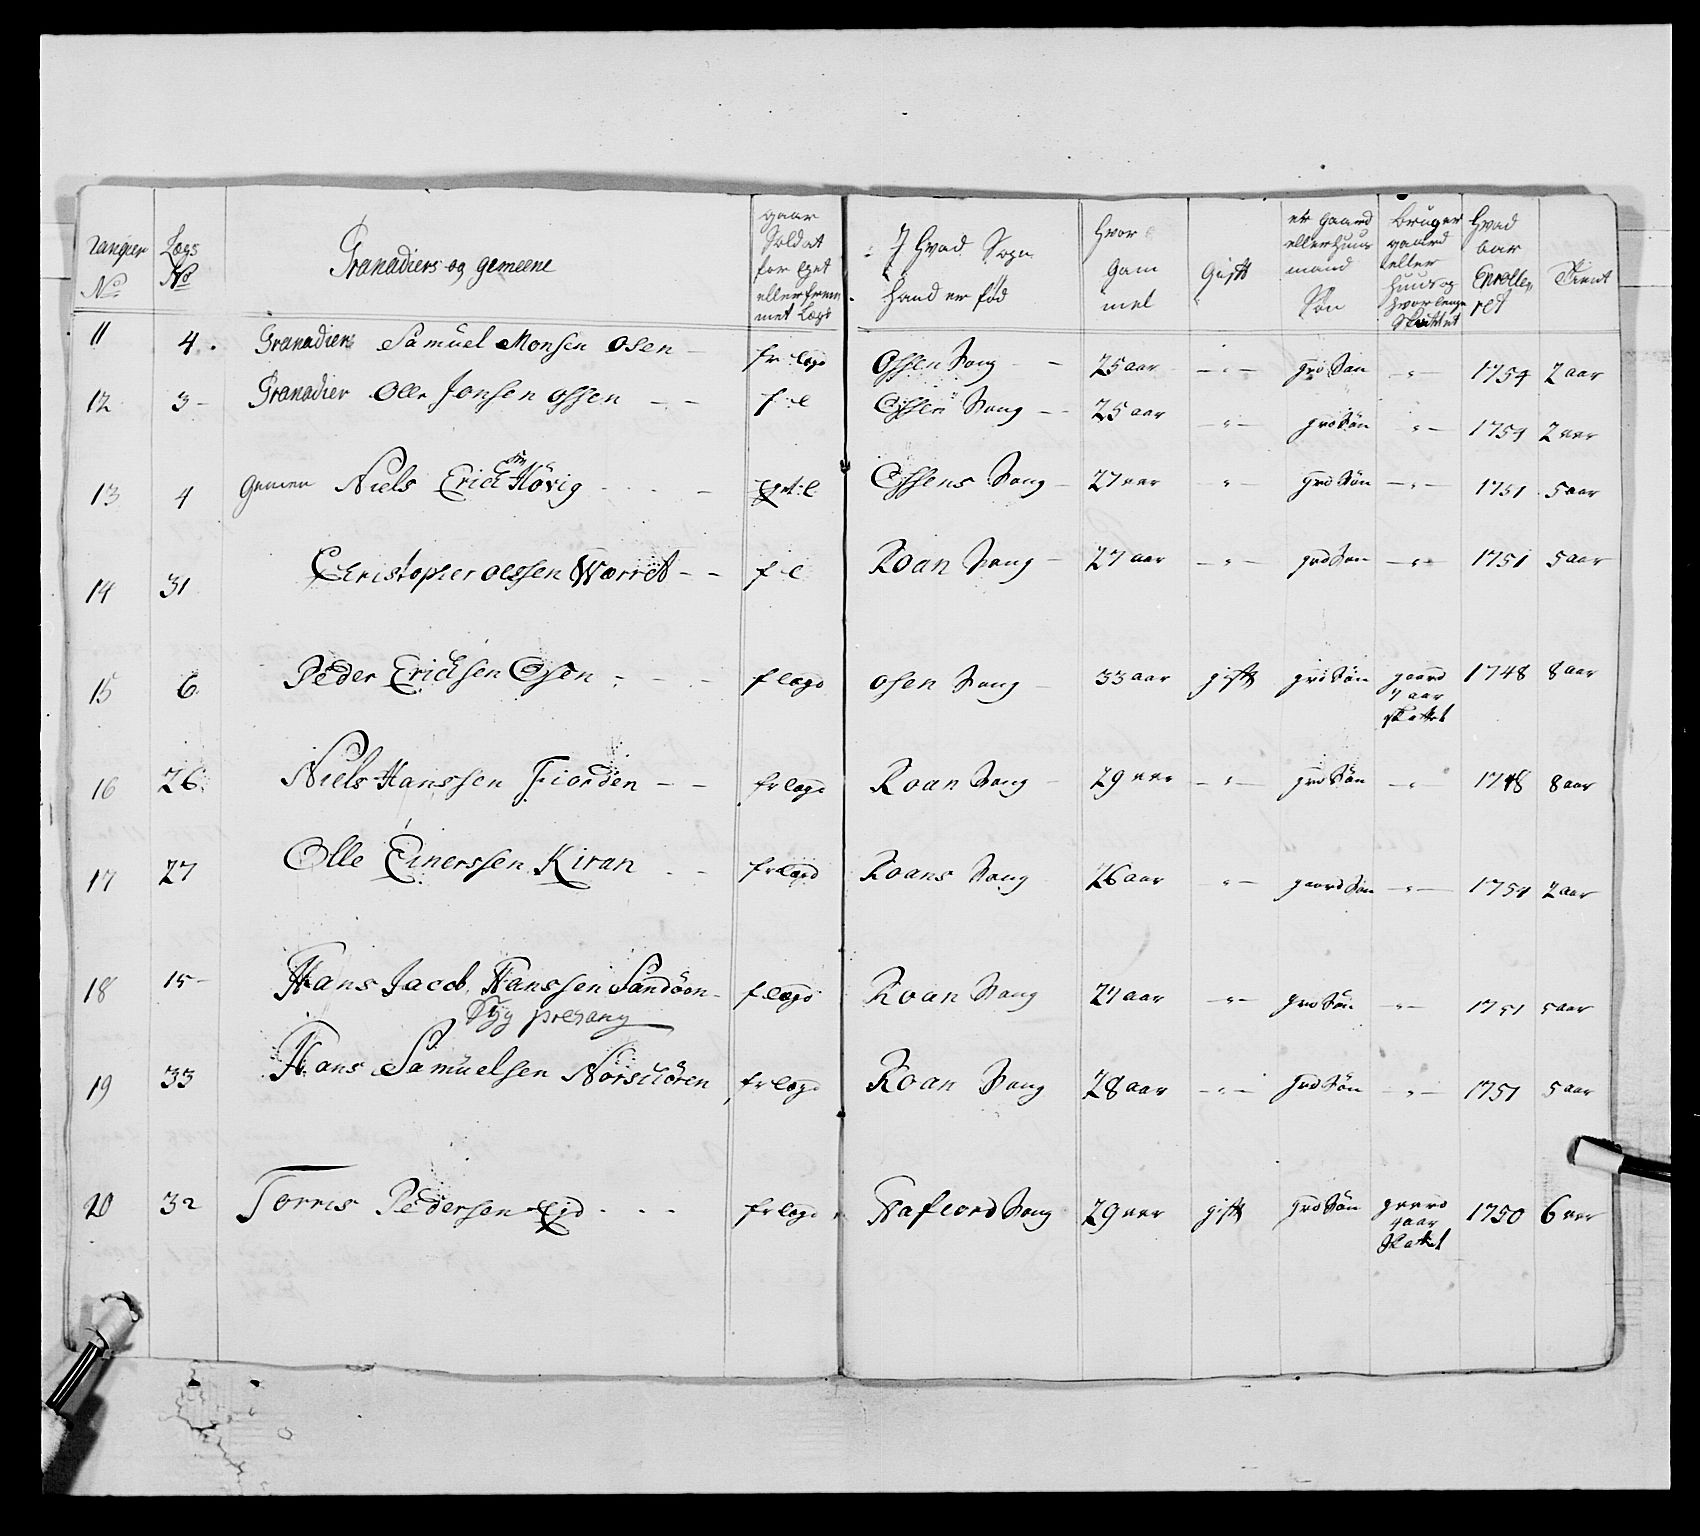 rangier No | Lægs No | Granadiers og gemeene | gaar Soldat for Eget eller frem met Lægd | J Hvad Sogn hand er fød | Hvor gam mel | Gift | er gaard eller Huus mand Søn | Bruger gaard eller Huus og hvor lenge Skattet | Hvad aar Enroller ret | Tient
11 | 4 | Granadier Samuel Monsen Osen | fr Lægd | Ossen Song | 25 aar | " | grd Søn | " | 1754 | 2 aar
12 | 3 | Granadier Olle Jonsen Ossen | f l | Ossen Song | 25 aar | " | grd Søn | " | 1754 | 2 aar
13 | 4 | Gemen Niels Erick sen Høvig | Eget l | Ossens Song | 27 aar | " | grd Søn | " | 1751 | 5 aar
14 | 31 | Christopher Olssen Worret | f l | Roan Song | 27 aar | " | grd Søn | " | 1751 | 5 aar
15 | 6 | Peder Ericksen Osen | f Lægd | Osen Song | 33 aar | gift | grd Søn | gaard 7 aar skattet | 1748 | 8 aar
16 | 26 | Niels Hanssen Fiorden | fr Lægd | Roan Song | 29 aar | " | grd Søn | " | 1748 | 8 aar
17 | 27 | Olle Einerssen Kiran | fr Lægd | Roans Song | 26 aar | " | gaard Søn | " | 1754 | 2 aar
18 | 15 | Hans Jacob Hanssen Sandøen | f Lægd | Roan Song | 27 aar | " | grd Søn | " | 1751 | 5 aar
19 | 33 | Hans Samuelsen Norskøren | fr Lægd | Roan Song | 28 aar | " | grd Søn | " | 1751 | 5 aar
20 | 32 | Torris Pedersen Eid | fr Lægd | Nafiord Song | 29 aar | gift | grd Søn | gaard aar skattet | 1750 | 6 aar